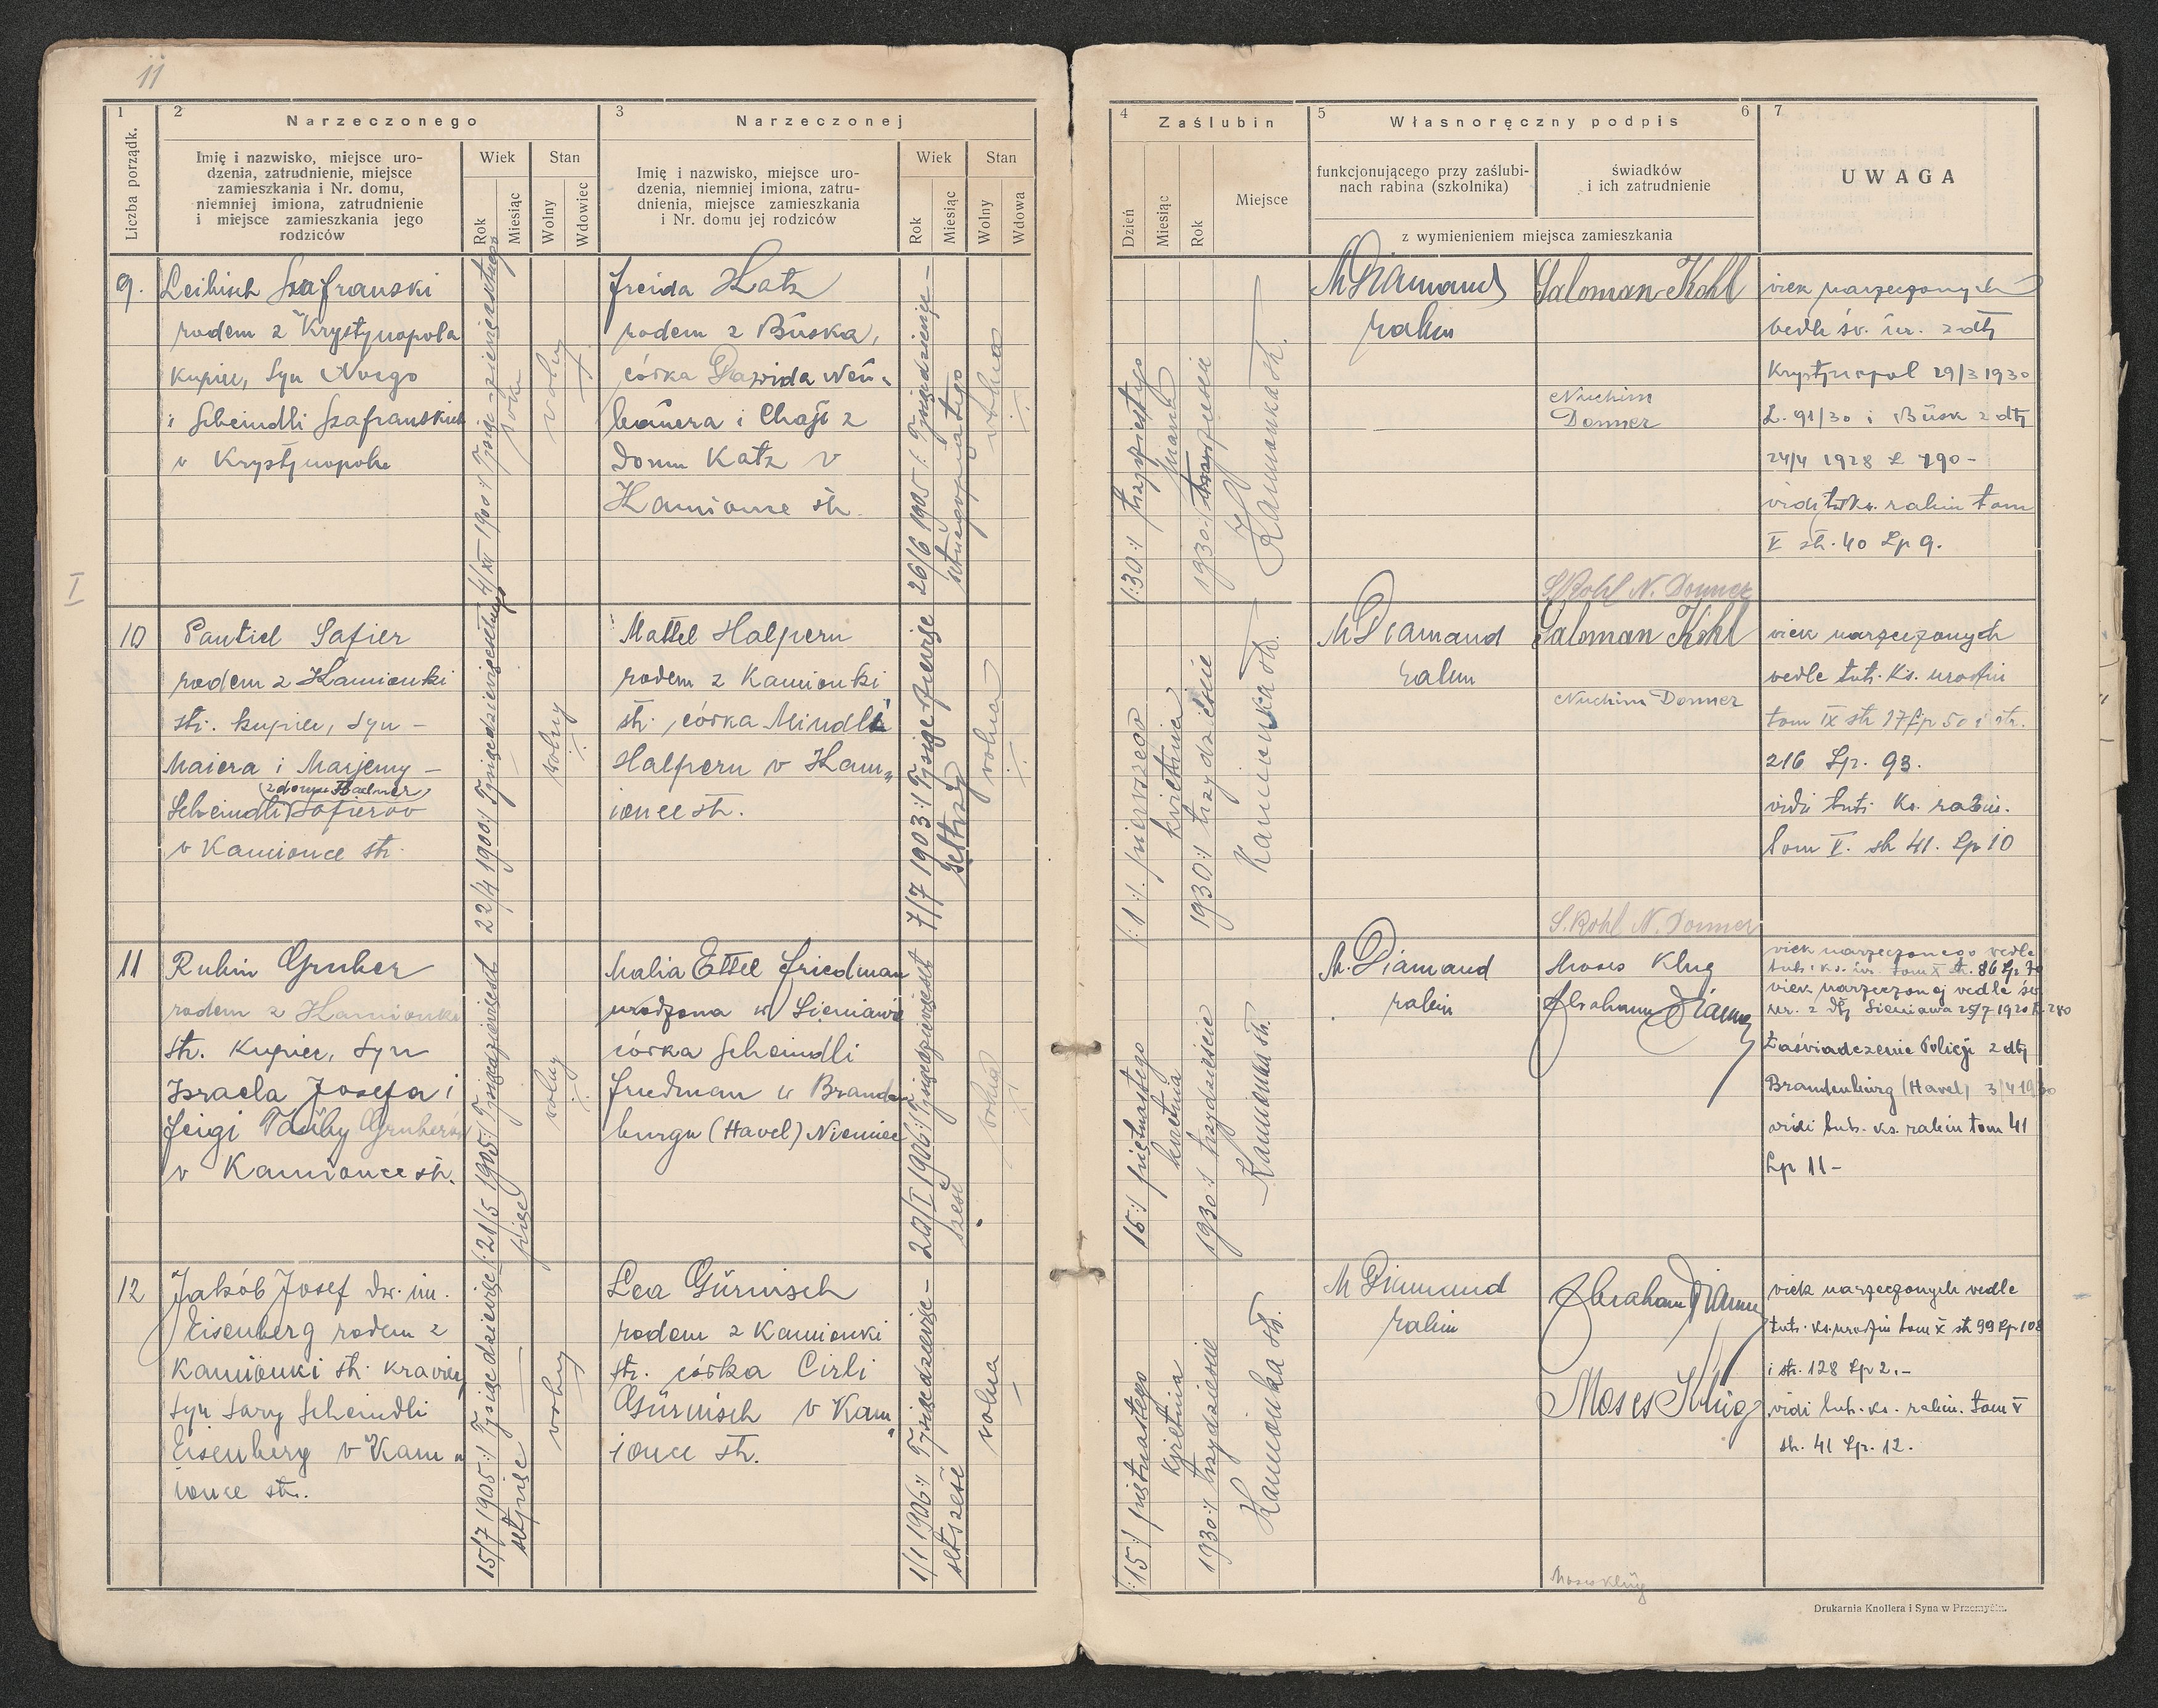 11
1
2
Narzeczonego
3
Narzeczonej
Liczba porządk.
Imię i nazwisko, miejsce uro-
dzenia, zatrudnienie, miejsce
zamieszkania i Nr. domu,
niemniej imiona, zatrudnienie
i miejsce zamieszkania jego
rodziców
Wiek
Rok
Miesiąc
Stan
Wolny
Wdowiec
Imię i nazwisko, miejsce uro-
dzenia, niemniej imiona, zatru-
dnienia, miejsce zamieszkania
i Nr. domu jej rodziców
Wiek
Rok
Miesiąc
Stan
Wolny
Wdowa
4
Zaślubin
5
Własnoręczny podpis
6
7
Dzień
Miesiąc
Rok
Miejsce
funkcjonującego przy zaślubi-
nach rabina (szkolnika)
świadków
i ich zatrudnienie
z wymienieniem miejsca zamieszkania
UWAGA
I
9.
Leibisch Szafranski
rodem z Krystynopola
kupiec, syn
i Scheindli Szafranskich
w Krystynopolu
4/XII 1900
wolny
Freida Katz
rodem z Buska,
córka Dawida Neu-
bauera i Chaji z
domu Katz w
Kamionce str.
26/6 1905
wolna
/:30:/ trzydziestego
marca
1930:/ trzydzieście
Kamionka str.
M Diamand
rabin
Saloman Kohl
Nuchim
Donner
S. Kohl N. Donner
wiek narzeczonych
wedle św. ur. z dty
Krystynopol 29/3 1930
L. 91/30 i Busk z dty
24/4 1928 L 190-
vidi tut. ks. rabin tom
V str. 40 Lp 9.
10
Pantiel Safier
rodem z Kamionki
str. kupiec, syn -
Maiera i Marjemy -
Scheindli Safierów
w Kamionce str.
22/4 1900:/ Tysiącdziewięćsetnego
wolny
Mattel Halpern
rodem z Kamionki
str., córka Mindli
Halpern w Kam„
ionce str.
7/7 1903:/ Tysiącdziewięć
settrzy
wolna
/:1:/ pierwszego
kwietnia
1930:/ trzydzieście
Kamionka str.
M Diamand
rabin
Saloman Kohl
Nuchim Donner
S. Kohl N. Donner
wiek narzeczonych
wedle tut. ks. urodzin
tom IX str 17 Lp 50 i str.
216 Lp. 93.
vidi tut. ks. rabin.
tom V. str 41. Lp 10
11
Rubin Gruber
rodem z Kamionki
str. kupiec, syn
Izraela Josefa i
Feigi Tauby Gruberów
w Kamionce str.
21/5 1905:/ Tysiącdziewięćset
pięć
wolny
Malia Ettel Friedman
urodzona w Sieniawie
córka Scheindli
Friedman w Branden-
burgu (Havel) Niemiec
1906:/ Tysiącdziewięćset
sześć
wolna
15:/ piętnastego
kwietnia
1930:/ trzydzieście
Kamionka str.
M. Diamand
rabin
Moses Klug
Abraham
wiek narzeczonego wedle
tut. ks. ur. tom X str. 86 Lp 70
wiek narzeczonej wedle św.
ur. z dty Sieniawa
Zaświadczenie Policji z dty
Brandenburg (Havel) 3/4 1930
vidi tut. ks. rabin tom 41
Lp 11-
12
Jakób Josef dw. im.
Eisenberg rodem z
Kamionki str. krawiec
syn Sary Scheindli
Eisenberg w Kam„
ionce str.
15/7 1905:/ Tysiącdziewięć
setpięć
wolny
Lea Gürnisch
rodem z Kamionki
str. córka Cirli
Gürnisch w Kam„
ionce str.
1/1 1906:/ Tysiącdziewięć-
setsześć
wolna
/:15:/ piętnastego
kwietnia
1930:/ trzydzieście
Kamionka str.
M Diamand
rabin
Abraham
Moses Klug
Moses Klug
wiek narzeczonych wedle
tut. ks. urodzin tom X str 99 Lp. 108
i str. 128 Lp 2.-
vidi tut. ks. rabin. tom V
str. 41 Lp. 12.
Drukarnia Knollera i Syna w Przemyślu.